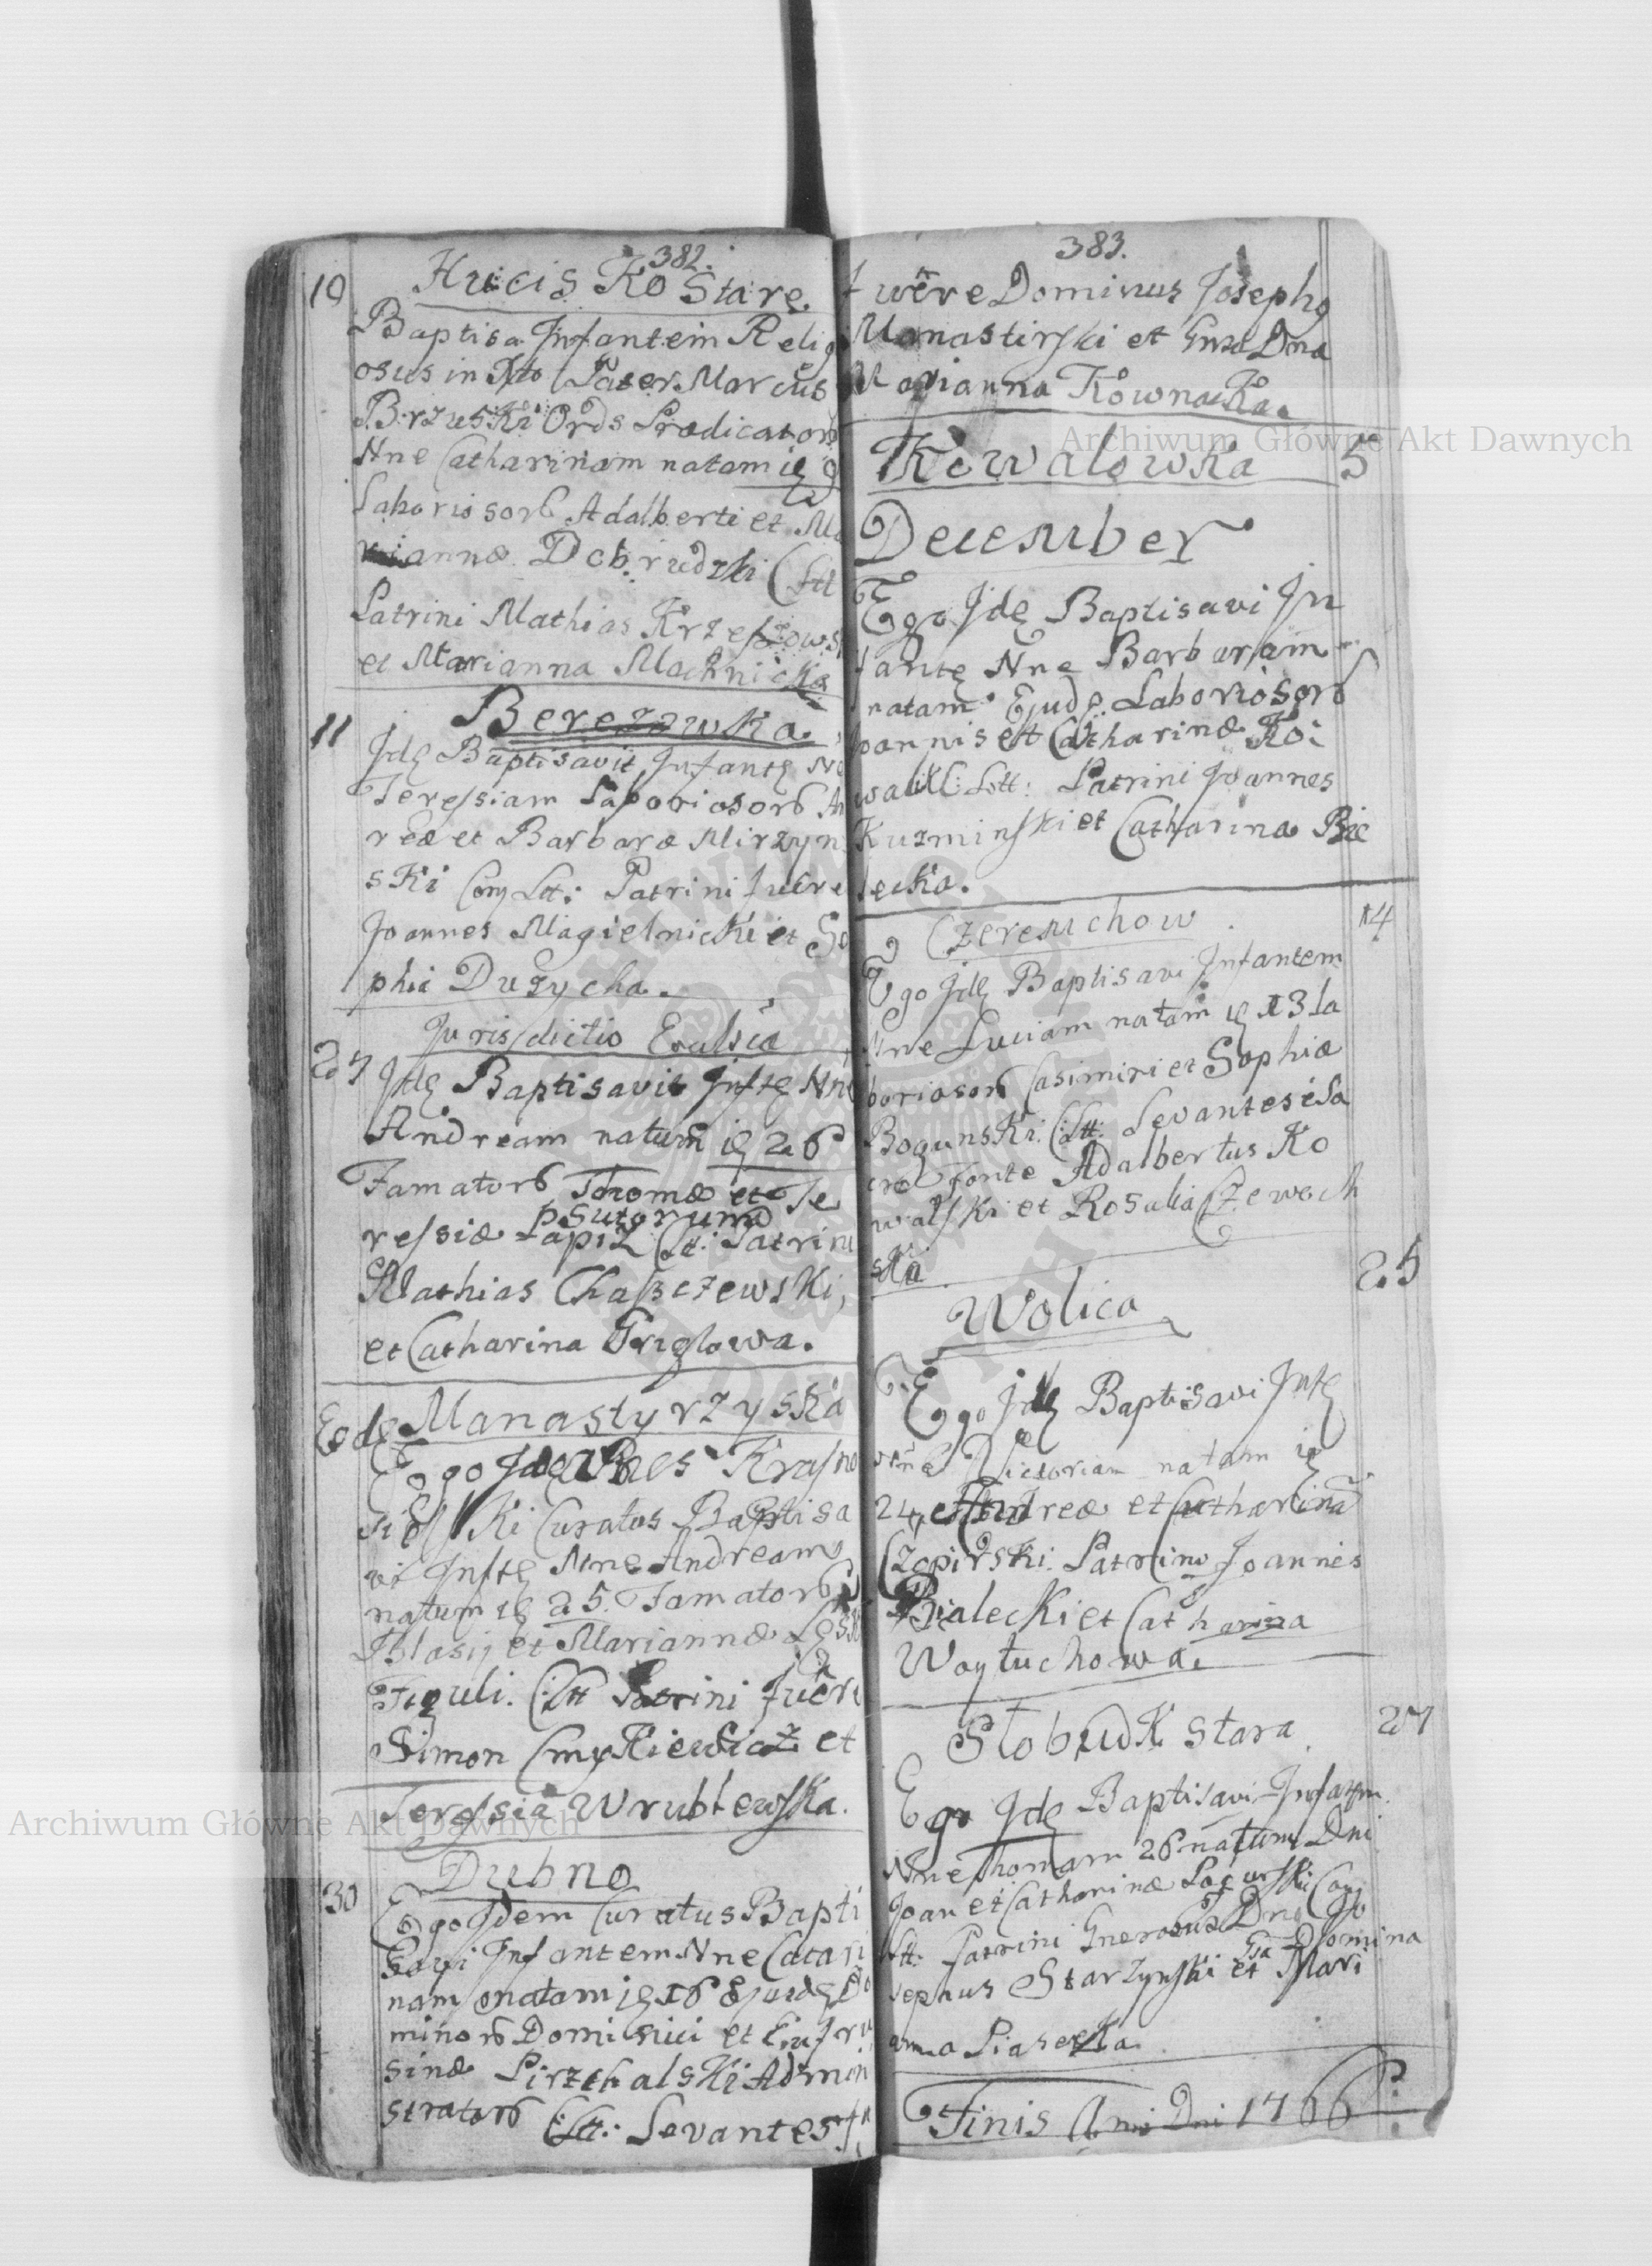 382.
10
Hucisko Stare.
Baptisa Infantem Relig
osus in Xto Pater Marcus
Brzuski Ords Prædicator
Nne Catharinam natam
Laboriosorb Adalberti et Ma
riannæ Dobrudzki Ltt
Patrini Mathias Krzeszows
et Marianna Machnicka
11
Berezowka.
Jdę Baptisavit Jnfantę
Teressiam Laboriosorb An
reæ et Barbaræ Mirzyn
ski Conj Ltt: Patrini fuere
Joannes Magielnicki et So
phia Duzycha.
Jurisdictio Ecclsiæ
27
Jdę Baptisavit Jnftę Nne
Andream natum ię 26
Famatorb Thomæ et Te
Sutorum
ressiæ Papiz Ltt: Patrini
Mathias Chaszczewski,
et Catharina Gruglowa.
Eodę
Manastyrzyska
Ego Jdę Krasno
Curatus Baptisa
vi Jnftę Nne Andream
natum ię 25. Famatorb
Blasij et Mariannæ
Figuli. Ltt Patrini fuere
Simon Cmykiewicz et
Teressia Wrublewska.
Dubno
30
Ego Jdem Curatus Bapti
savi Jnfantem Nne Catari
nam natam ię 16 Ejusdę Do
minorb Dominici et Eufro
sinæ Pirzchalski Admini
stratorb Ltt: Levantes
383.
fuere Dominus Josephg
Monastirski et Gnsa Dna
Marianna Kownacka.
Kowalowka
5
December
Ego Jdę Baptisavi Jn
fantę Nne Barbaram
natam Ejudę Laboriosorb
Joannis et Catharinæ Ko:
walik: Ltt: Patrini Joannes
Kuzminski et Catharina Bie
lecka.
Czeremchow
14
Ego Jdę Baptisavi Jnfantem
Nne Luciam natam ię 13 La
boriosorb Casimiri et Sophiæ
Bogunski. Ltt: Levantes é Sa
cro Fonte Adalbertus Ko
walski et Rosalia Czewoch
ska
25
Wolica
Ego Jdę Baptisavi Jnftę
Nne Victoriam natam ię
24 Andreæ et Catharinæ
Czopirski. Patrini Joannes
Bialecki et Catharina
Woytuchowa.
Slobudk Stara
27
Ego Jdę Baptisavi Jnfantem
Nne Thomam 26 natum Dni
Joan et Catharinæ Conj
Ltt: Patrini Gnerosus Dns Jo
sephus Starzynski et Gsa Domina Mari
anna Piasecka
Finis Anni Dni 1766
Archiwum Główne Akt Dawnych
Archiwum Główne Akt Dawnych